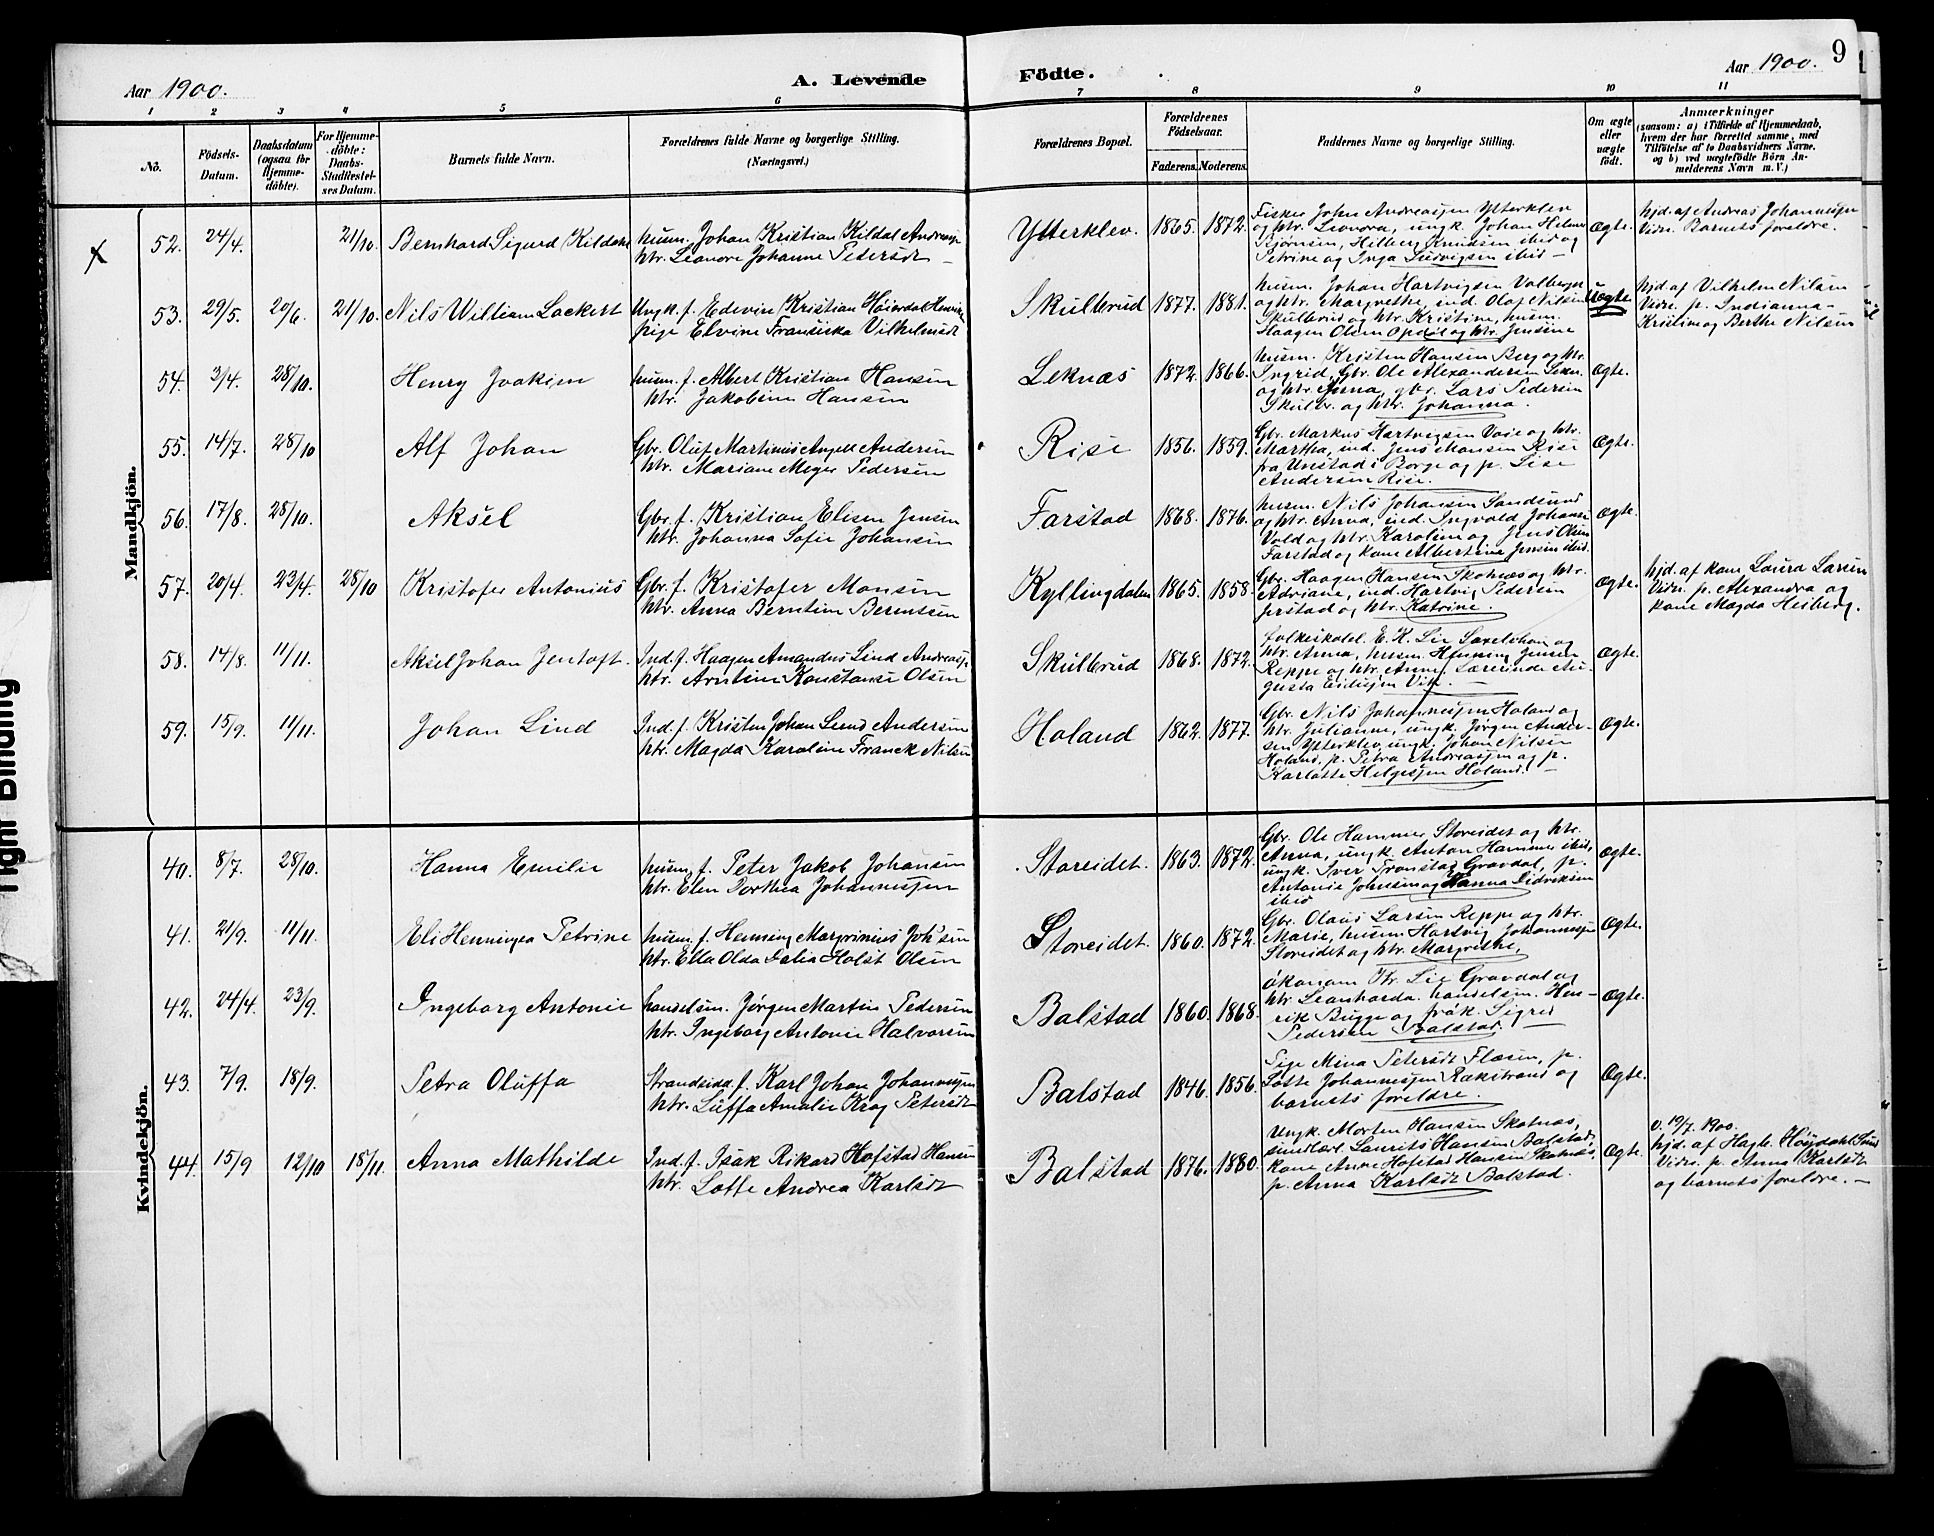 9
Aar 1900.
A. Levende Födte.
Aar 1900.
1 2 3 4 5 6 7 8 9 10 11
No.
Födsels-Datum.
Daabsdatum (ogsaa for Hjemme-döbte).
For Hjemme-döbte: Daabs-Stadfæstel-ses Datum.
Barnets fulde Navn.
Forældrenes fulde Navne og borgerlige Stilling.
(Næringsvei.)
Forældrenes Bopæl.
Forældrenes Födselsaar.
Faderens. Moderens.
Faddernes Navne og borgerlige Stilling.
Om ægte eller uægte födt.
Anmærkninger
(saasom: a) i Tilfælde af Hjemmedaab,
hvem der har forrettet samme, med
Tilföielse af to Daabsvidners Navne.
og b) ved uægtefödte Börn An-
melderens Navn m. V.)
Mandkjön.
52. 24/4. 21/10. Bernhard Sigurd Kildahl
husm. Johan Kristian Kildal Andreass.
htr. Leonore Johanne Petersdt
Ytterklev. 1865. 1872.
Fisker John Andreassen Ytterklev
og htr. Leonora, ungk. Johan Helmer
Bjørnsen, Hilberg Knudsen ibid og
Petrine og Inga Ludvigsen ibid
Ægte.
hjd. af Andreas Johannessen
Vidn. Barnets foreldre.
53. 29/5. 20/6. 21/10. Nils William Lackert
Ungk. f. Edevin Kristian Høierdal
pige Elvine Fransiska Vilhelmsdt
Skulbrud 1877. 1881.
husm. Johan Hartvigsen Valberg
og htr. Margrethe, ind. Olaf Nilsen
Skulbrud og htr. Kristine, husm.
Haagen Olsen Opdøl og htr. Jensine
Uægte.
hjd. af Vilhelm Nilsen
Vidn. p. Indianna
Kristine og Berthe Nilsen
54. 3/4. 28/10. Henry Joakim
husm. f. Albert Kristian Hansen
htr. Jakobine Hansen
Leknæs 1872. 1866.
husm. Kristen Hansen Berg og htr.
Ingrid, Gbr. Ole Alexandersen Lekn.
og htr. Anna, gbr. Lars Pedersen
Skulbr. og htr. Johanna.
Ægte.
55. 14/7. 28/10 Alf Johan
Gbr. Oluf Martinius Angell Andersen
htr. Mariane Meyer Pedersen
Rise 1856. 1859.
Gbr. Markus Hartvigsen Voie og htr.
Martha, ind. Jens Monsen Rise
fra Unstad i Borge og p. Lise
Andersen Rise.
Ægte.
56. 17/8. 28/10. Aksel
Gbr. f. Kristian Elisen Jensen
htr. Johanna Sofie Johansen
Farstad 1868. 1876.
husm. Nils Johansen Sandsund
og htr. Anna, ind. Ingvald Johansen
Vold og htr. Karoline og Jens Olsen
Farstad og kone Albertine Jensen ibid.
Ægte.
57. 20/4. 23/4. 28/10 Kristofer Antonius
Gbr. f. Kristofer Monsen
htr. Anna Berntine Berntsen
Kyllingdalen 1865. 1858.
Gbr. Haagen Hansen Skotnæs og htr.
Adriane, ind. Hartvig Pedersen
og htr. Katrine.
Ægte.
hjd. af kone Laura Larsen
Vidn. p. Alexandra og
kone Magda Heiberg.
58. 14/8. 11/11. Aksel Johan Jentoft.
Ind. f. Haagen Amandus Lind Andreass.
htr. Arntine Konstanse Olsen
Skulbrud 1868. 1872.
E. K. Lie og
htr. Anna, husm. Henning Jensen
Reppe og htr. Anne, Lærerinde Au-
gusta Eidissen Vik.
Ægte.
59. 15/9. 11/11. Johan Lind
Ind. f. Kristen Johan Lund Andersen
htr. Magda Karoline Franck Nilsen
Holand 1862. 1877.
Gbr. Nils Johannessen Holand og
htr. Julianne, ungk. Jørgen Ander-
sen Ytterklev, ungk. Johan Nilsen
Holand, p. Petra Andreassen og p.
Karlotte Helgesen Holand.
Ægte.
Kvindekjön.
40. 8/7. 28/10. Hanna Emilie
husm. f. Peter Jakob Johansen
htr. Elen Dorthea Johannessen
Storeidet. 1863. 1872.
Gbr. Ole Hammer Storeidet og htr.
Anna, ungk. Anton Hammer ibid,
ungk. Iver Tronstad Gravdal, p.
Antonie Johnsen og Hanna Didriksen
ibid
Ægte.
41. 21/9. 11/11. Eli Henningea Petrine
husm. f. Henning Margrinius Joh'sen
htr. Ella Olda Dalia Holst Olsen
Storeidet. 1860. 1872.
Gbr. Olaus Larsen Reppe og htr.
Marie, husm Hartvig Johannessen
Storeidet og htr. Margrethe,
Ægte.
42. 24/4. 23/9. Ingeborg Antonie
handelsm. Jørgen Martin Pedersen
htr. Ingeborg Antonie Halvorsen
Balstad 1860. 1868.
økonom Kr. Lie Gravdal og
htr. Leonharda. handelsm. Hen-
rik Bugge og frøk. Sigrid
Pedersen Balstad.
Ægte.
43. 7/9. 18/9. Petra Oluffa
Strandsidd. f. Karl Johan Johannessen
htr. Luffa Amalie Krog Petersdt
Balstad 1846. 1856.
Pige Mina Petersdt Flæsen, p.
Lotte Johannessen Rækstrand og
barnets foreldre.
Ægte.
44. 15/9 12/10 18/11. Anna Mathilde
Ind. f. Isak Rikard Hofstad Hansen
htr. Lotte Andrea Karlsdt
Balstad 1876. 1880.
Ungk. Morten Hansen Skotnæs,
Laurits Hansen Balstad,
kone Anne Hofstad Hansen Skotnæs,
p. Anna Karlsdt Balstad.
Ægte.
v. 19/7. 1900.
hjd. af Hagb. Høydahl Sund
Vidn. p. Anna Karlsdt
og barnets foreldre. —
Tight Binding